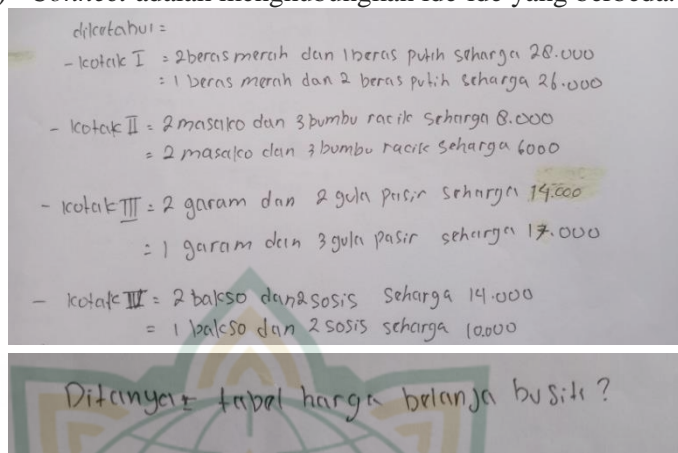 Connect adalah menghubungkan ide-ide yang berbeda.
diketahui =
- kotak I = 2 beras merah dan 1 beras putih seharga 28.000
= 1 beras merah dan 2 beras putih seharga 26.000
- kotak II = 2 masako dan 3 bumbu racik seharga 8.000
= 2 masako dan 3 bumbu racik seharga 6000
- kotak III = 2 garam dan 2 gula pasir seharga 14.000
= 1 garam dan 3 gula pasir seharga 17.000
- kotak IV = 2 bakso dan 2 sosis seharga 14.000
= 1 bakso dan 2 sosis seharga 10.000
Ditanya = tabel harga belanja bu siti ?